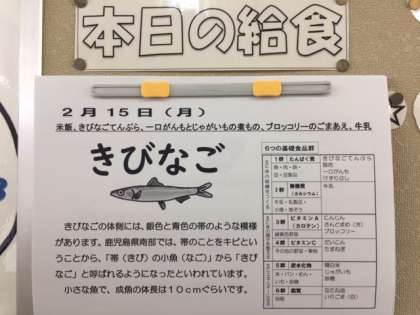 本日の給食
2月15日(月)
米飯、きびなごてんぷら、一口がんもとじゃがいもの煮もの、ブロッコリーのごまあえ、牛乳
きびなご
きびなごの体側には、銀色と青色の帯のような模様
があります。鹿児島県南部では、帯のことをキビという
ことから、「帯(きび)の小魚(なご)」から「きび
なご」と呼ばれるようになったといわれています。
小さな魚で、成魚の体長は10cmぐらいです。
6つの基礎食品群
1群 たんぱく質
魚・肉・卵・
豆・豆製品
きびなごてんぷら
一口がんも
けずりぶし
2群 無機質
(カルシウム)
牛乳・乳製品・
小魚・海そう
牛乳
3群 ビタミンA
(カロテン)
緑黄色野菜
にんじん
さんどまめ
ブロッコリー
4群 ビタミンC
その他の野菜・果物
だいこん
たまねぎ
5群 炭水化物
米・パン・めん・
いも・砂糖
精白米
じゃがいも
砂糖
6群 脂質
油脂
なたね油
いりごま(白)